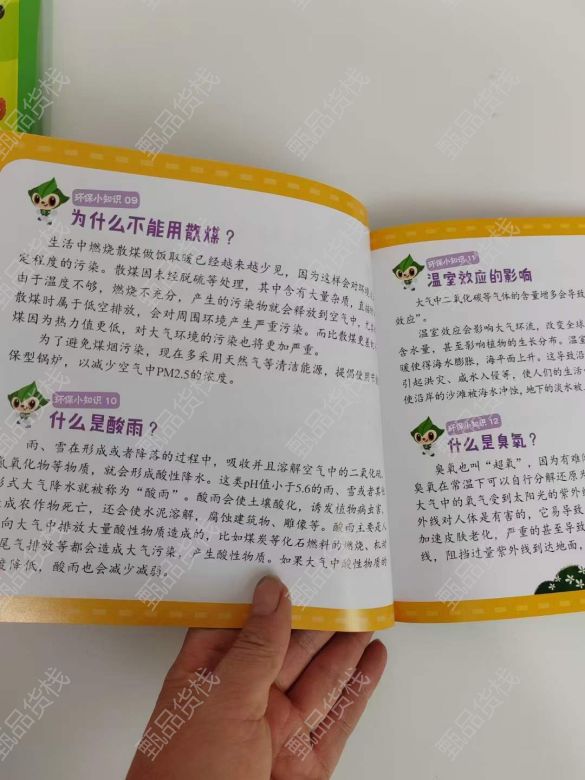 环保小知识 09
为什么不能用散煤？
生活中燃烧散煤做饭取暖已经越来越少见，因为这样会对环境
定程度的污染。散煤因未经脱硫等处理，其中含有大量杂质，直接
由于温度不够，燃烧不充分，产生的污染物就会释放到空气中，尤
散煤时属于低空排放，会对周围环境产生严重污染。而比散煤更
煤因为热力值更低，对大气环境的污染也将更加严重。
为了避免煤烟污染，现在多采用天然气等清洁能源，提倡使用
保型锅炉，以减少空气中PM2.5的浓度。
环保小知识 10
什么是酸雨？
雨、雪在形成或者降落的过程中，吸收并且溶解空气中的二氧化硫、
氮氧化物等物质，就会形成酸性降水。这类pH值小于5.6的雨、雪或者其他
形式大气降水就被称为“酸雨”。酸雨会使土壤酸化，诱发植物病虫害，
造成农作物死亡，还会使水泥溶解，腐蚀建筑物、雕像等。酸雨主要是人
向大气中排放大量酸性物质造成的，比如煤炭等化石燃料的燃烧、机动
尾气排放等都会造成大气污染，产生酸性物质。如果大气中酸性物质的
度降低，酸雨也会减少减弱。
环保小知识 11
温室效应的影响
大气中二氧化碳等气体的含量增多会导致
效应”。
温室效应会影响大气环流，改变全球
含水量，甚至影响植物的生长分布。温室
暖使得海水膨胀，海平面上升。这导致沿
引起洪灾、咸水入侵等，使人们的生活
使沿岸的沙滩被海水冲蚀，地下的淡水被
环保小知识 12
什么是臭氧？
臭氧也叫“超氧”，因为有难
臭氧在常温下可以自行分解还原为
大气中的氧气受到太阳光的紫外线
外线对人体是有害的，它易导致
加速皮肤老化，严重的甚至导致
线，阻挡过量紫外线到达地面，
甄品货栈